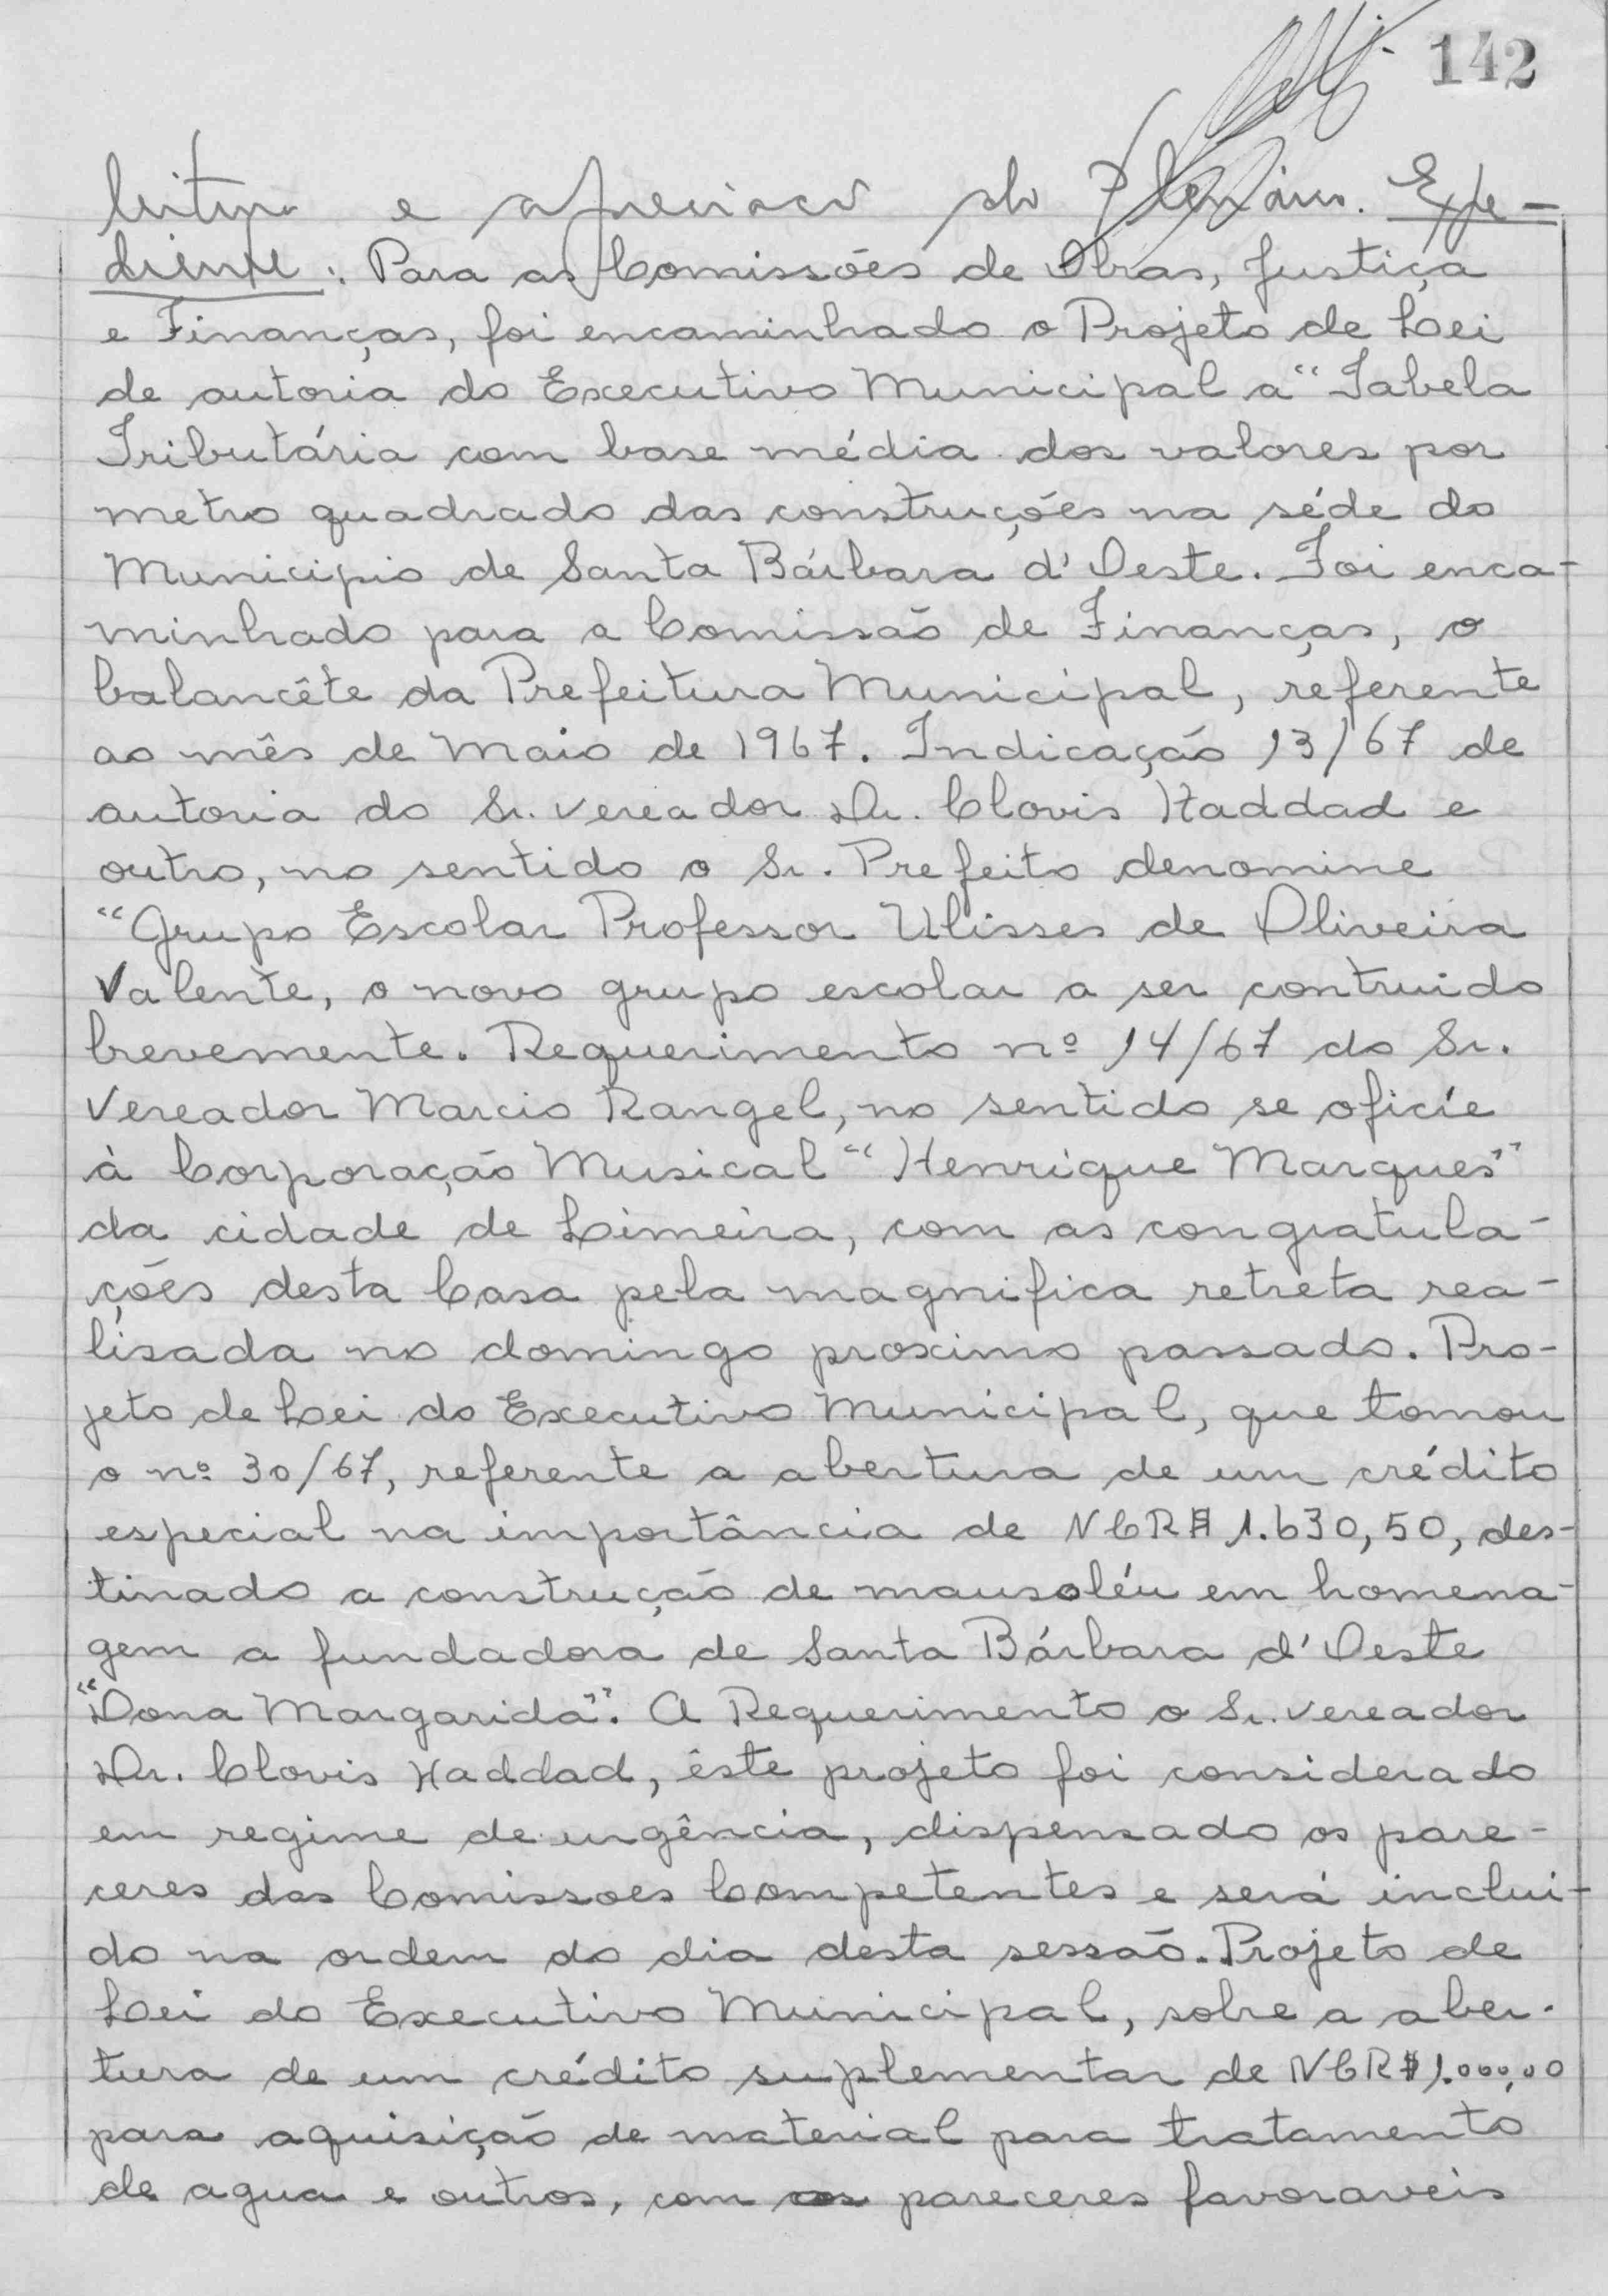 142
leitura e apreciação do Plenário. Expe-
diente: Para as Comissões de Obras, Justiça
e Finanças, foi encaminhado o Projeto de Lei
de autoria do Executivo Municipal a "Tabela
Tributária com base média dos valores por
metro quadrado das construções na séde do
Municipio de Santa Bárbara d'Oeste. Foi enca-
minhado para a Comissão de Finanças, o
balancête da Prefeitura Municipal, referente
ao mês de Maio de 1967. Indicação 13/67 de
autoria do Sr. Vereador Dr. Clovis Haddad e
outro, no sentido o Sr. Prefeito denomine
"Grupo Escolar Professor Ulisses de Oliveira
Valente, o novo grupo escolar a ser contruido
brevemente. Requerimento nº 14/67 do Sr.
Vereador Marcio Rangel, no sentido se oficíe
à Corporação Musical "Henrique Marques"
da cidade de Limeira, com as congratula-
ções desta Casa pela magnifica retreta rea-
lisada no domingo proximo passado. Pro-
jeto de Lei do Executivo Municipal, que tomou
o nº 30/67, referente a abertura de um crédito
especial na importância de NCR$ 1.630,50, des-
tinado a construção de mausoléu em homena-
gem a fundadora de Santa Bárbara d'Oeste
"Dona Margarida". A Requerimento o Sr. Vereador
Dr. Clovis Haddad, êste projeto foi considerado
em regime de urgência, dispensado os pare-
ceres das Comissoes Competentes e será inclui-
do na ordem do dia desta sessão. Projeto de
Lei do Executivo Municipal, sobre a aber-
tura de um crédito suplementar de NCR$ 1.000,00
para aquisição de material para tratamento
de agua e outros, com os pareceres favoraveis